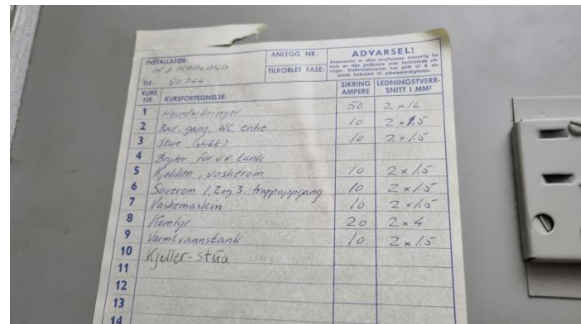 INSTALLATØR: ANLEGG NR.: ADVARSEL!
TLF.: 50744 TILKOBLET FASE:
KURS NR. KURSFORTEGNELSE: SIKRING AMPERE LEDNINGSTVERR-SNITT I MM²
1 Hovedsikringer 50 2 x 16
2 Bad, gang, WC, entre 10 2 x 1.5
3 Stue (stikk) 10 2 x 1.5
4 Bryter for v.v. tank
5 Kjøkken, vaskerom 10 2 x 1.5
6 Soverom 1, 2 og 3. trappoppgang 10 2 x 1.5
7 Vaskemaskin 10 2 x 1.5
8 Komfyr 20 2 x 4
9 Varmtvannstank 10 2 x 1.5
10 Kjeller-stua
11
12
13
14